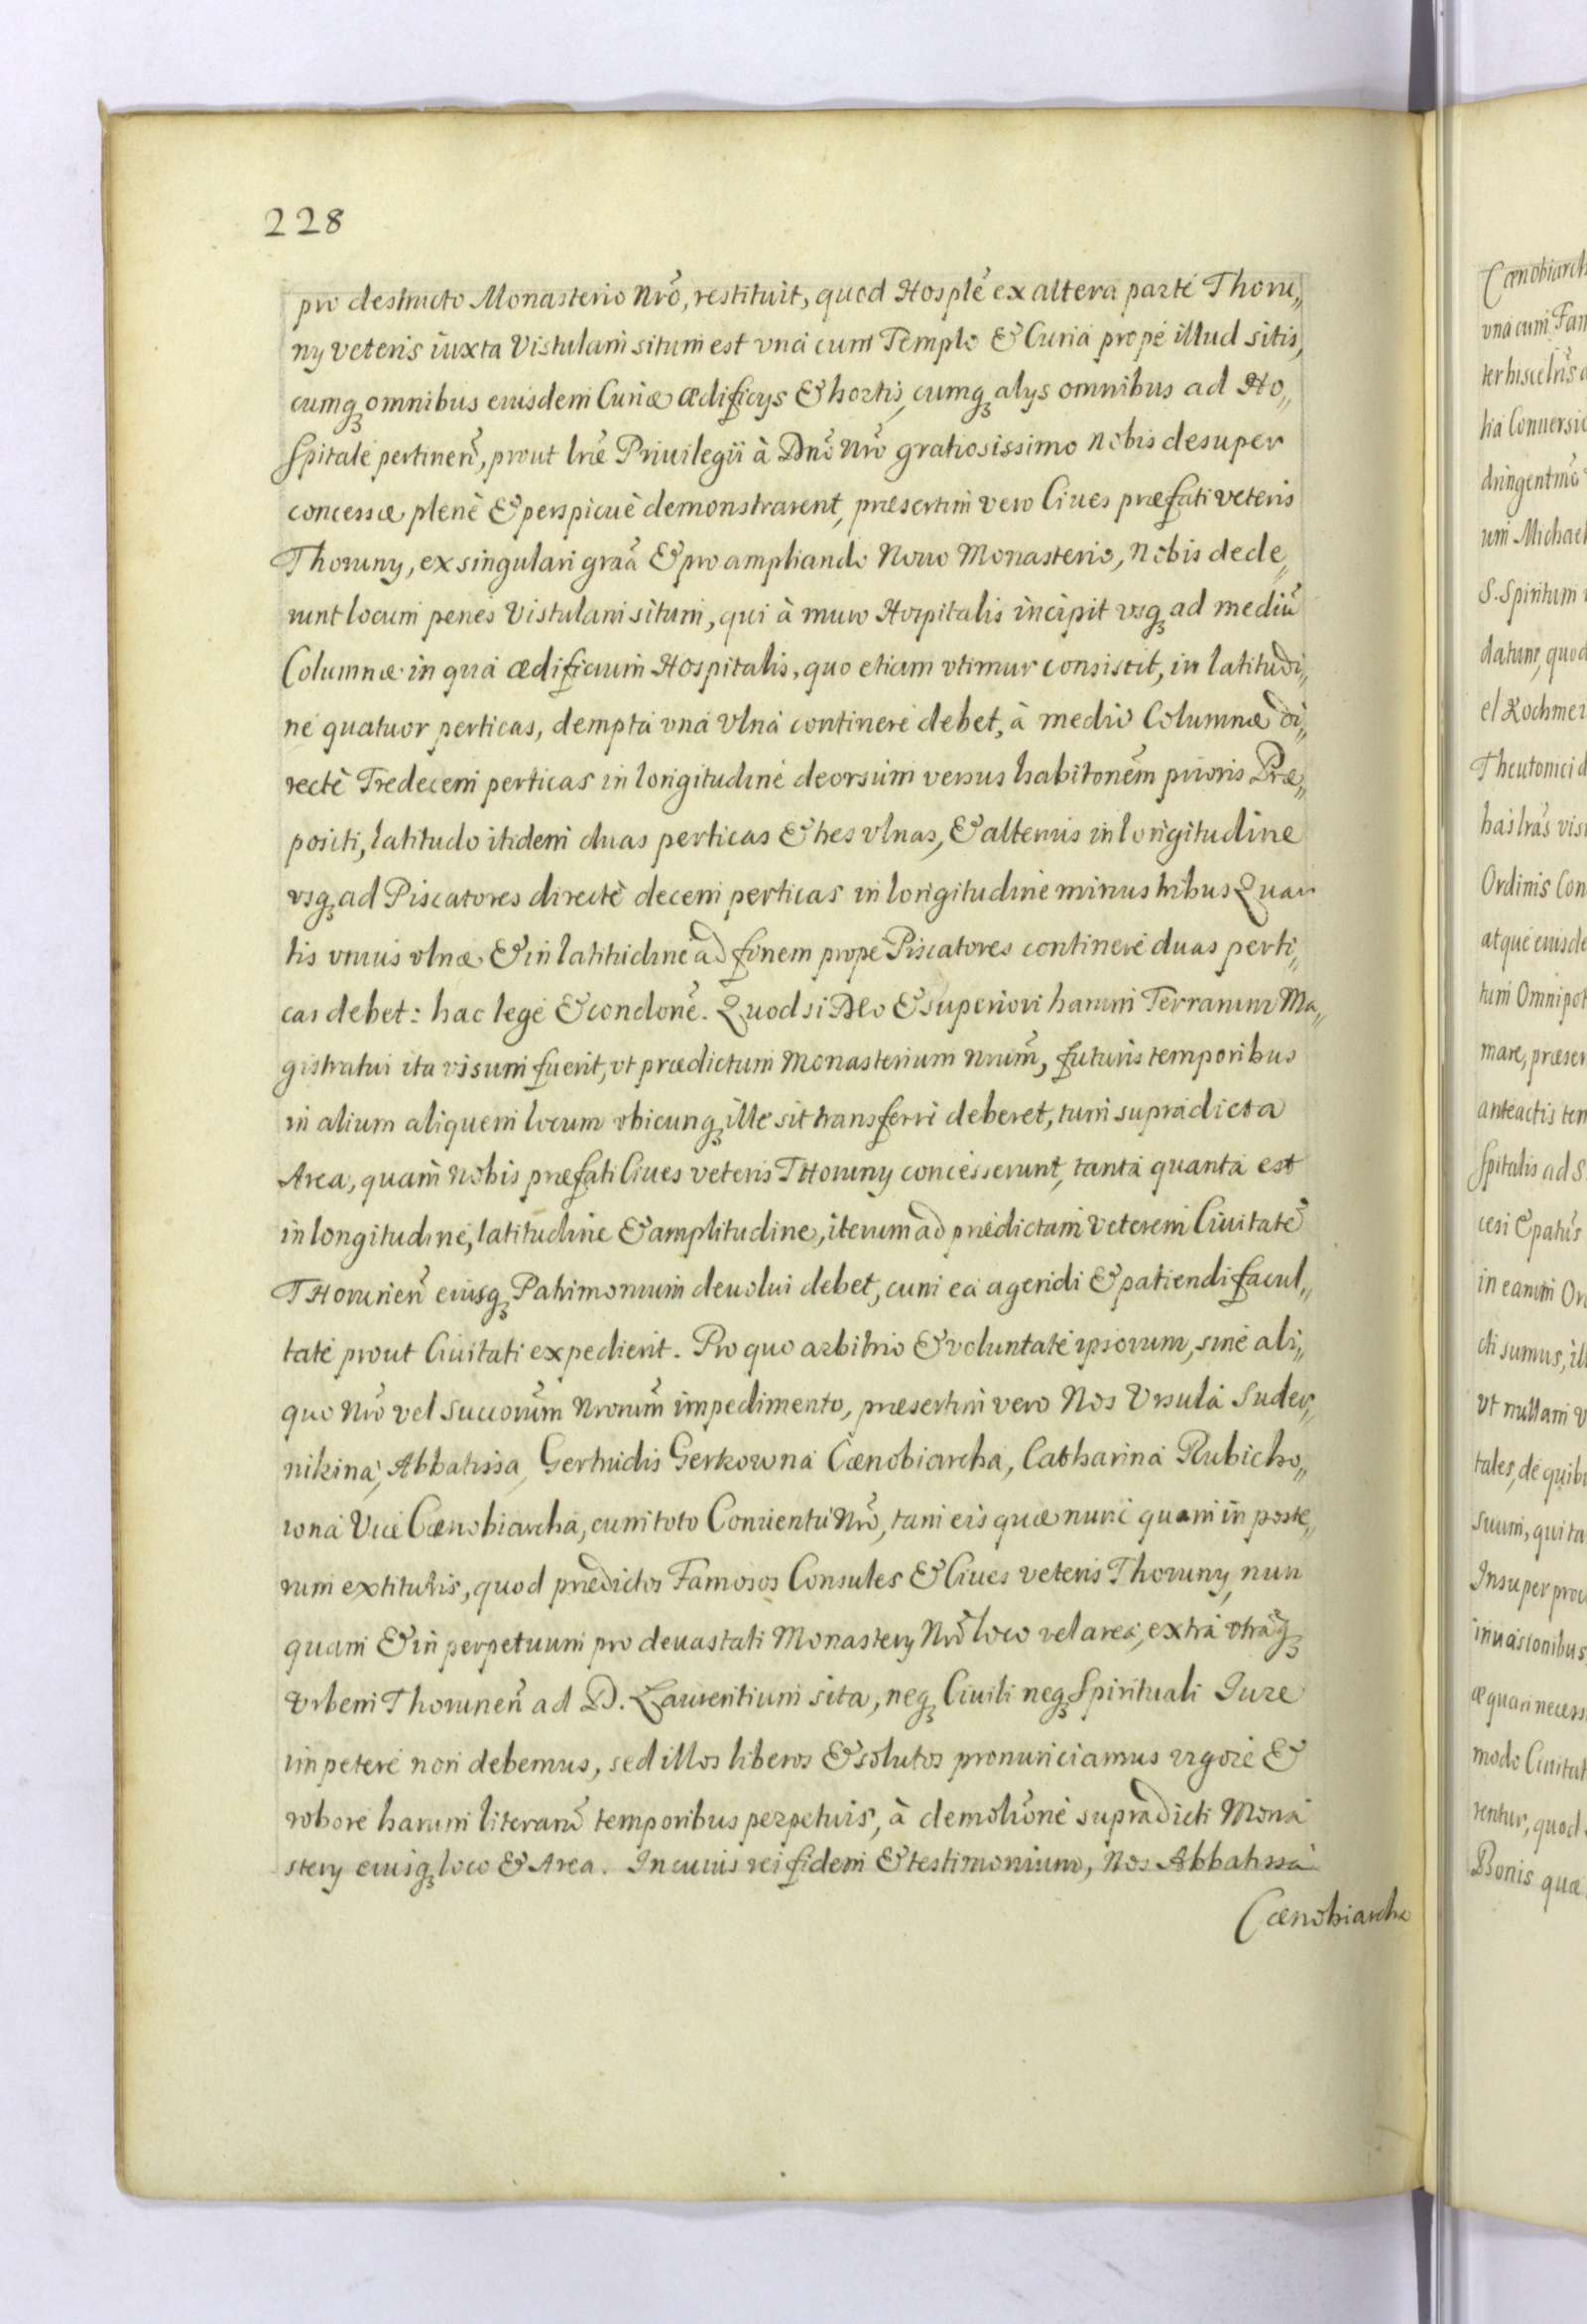 228
pro destructo Monasterio Nrõ, restituit, quod Hosplẽ ex altera parte Thoru„
ny veteris iuxta Vistulam situm est vna cum Templo & Curia prope illud sitis,
cumq; omnibus eiusdem Curiæ ædificys & hortis, cumq; alys omnibus ad Ho„
spitale pertineñ, prout lræ Priuilegii à Dnõ Nrõ gratiosissimo Nobis desuper
concessæ plenè & perspicuè demonstrarent, præsertim vero Ciues præfati veteris
Thoruny, ex singulari graã & pro ampliando Nouo Monasterio, Nobis dede„
runt locum penes Vistulam situm, qui à muro Hospitalis incipit vsq; ad mediũ
Columnæ in qua ædificium Hospitalis, quo etiam vtimur consistit, in latitudi„
ne quatuor perticas, dempta vna Vlna continere debet, à medio Columnæ di„
rectè Tredecem perticas in longitudine deorsum versus habitonẽm prioris Præ„
positi, latitudo itidem duas perticas & tres vlnas, & alterius in longitudine
vsq; ad Piscatores directè decem perticas in longitudine minus tribus Quar
tis vnius vlnæ & in latitudine ad finem prope Piscatores continere duas perti„
cas debet: hac lege & condonẽ. Quod si Deo & superiori harum Terrarum Ma„
gistratui ita visum fuerit, vt prædictum Monasterium Nrum̃, futuris temporibus
in alium aliquem locum vbicunq; ille sit transferri deberet, tum supradicta
Area, quam Nobis præfati Ciues veteris THoruny concesserunt, tanta quanta est
in longitudine, latitudine & amplitudine, iterum ad prædictam Veterem Ciuitatẽ
THoruneñ eiusq; Patrimonium deuolui debet, cum ea agendi & patiendi facul„
tate prout Ciuitati expedierit. Pro quo arbitrio & voluntate ipsorum, sine ali„
quo Nrõ vel Succorum̃ Nrorum̃ impedimento, præsertim vero Nos Vrsula Suder„
nikina, Abbatissa, Gertrudis Gerkowna Cænobiarcha, Catharina Rubicho„
wna Vice Cænobiarcha, cum toto Conuentu Nrõ, tam eis quæ nunc quam in poste„
rum extituris, quod prædictos Famosos Consules & Ciues veteris Thoruny, nun
quam & in perpetuum pro deuastati Monastery Nrõ loco vel area, extra vtrãq;
Vrbem Thoruneñ ad D. Laurentium sita, neq; Ciuili neq; Spirituali Iure
impetere non debemus, sed illos liberos & solutos pronunciamus vigore &
robore harum literarũ temporibus perpetuis, à demoliõne supradicti Mona
stery eiusq; loco & Area. In cuius rei fidem & testimonium, Nos Abbatissa
Cænobiarcha
Cænobiarch
vna cum Fam
um Michael
S. Spiritum
datum, quod
el Kochmer
Theutonici d
Ordinis Con
atque eiusde
tum Omnipot
mare, præser
anteactis tem
spitalis ad S
di sumus, ill
Vt nullam v
tales, de quib
suum, qui ta
Insuper pro
inuasionibus
modo Ciuitat
rentur, quod
Bonis quæ